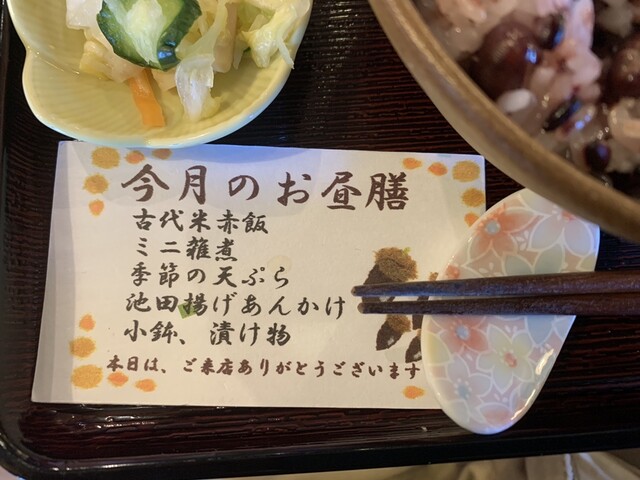 今月のお昼膳
古代米赤飯
ミニ雑煮
季節の天ぷら
池田揚げあんかけ
小鉢、漬け物
本日は、ご来店ありがとうございます